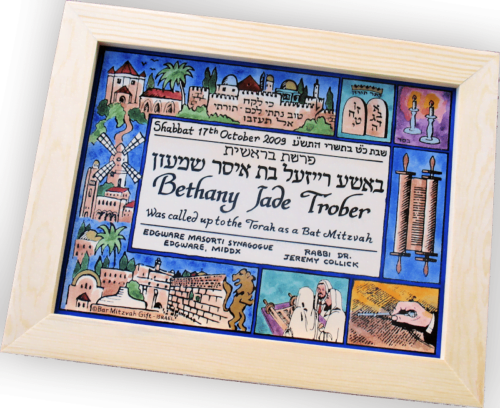 כי לקח
טוב נתתי לכם תורתי
אל תעזבו
Shabbat 17th October 2009 שבת כ"ט בתשרי התש"ע
פרשת בראשית
באשע רייזעל בת איסר שמעון
Bethany Jade Trober
Was called up to the Torah as a Bat Mitzvah
EDGWARE MASORTI SYNAGOGUE
EDGWARE, MIDDX
RABBI DR.
JEREMY COLLICK
©Bar Mitzvah Gift - ISRAEL